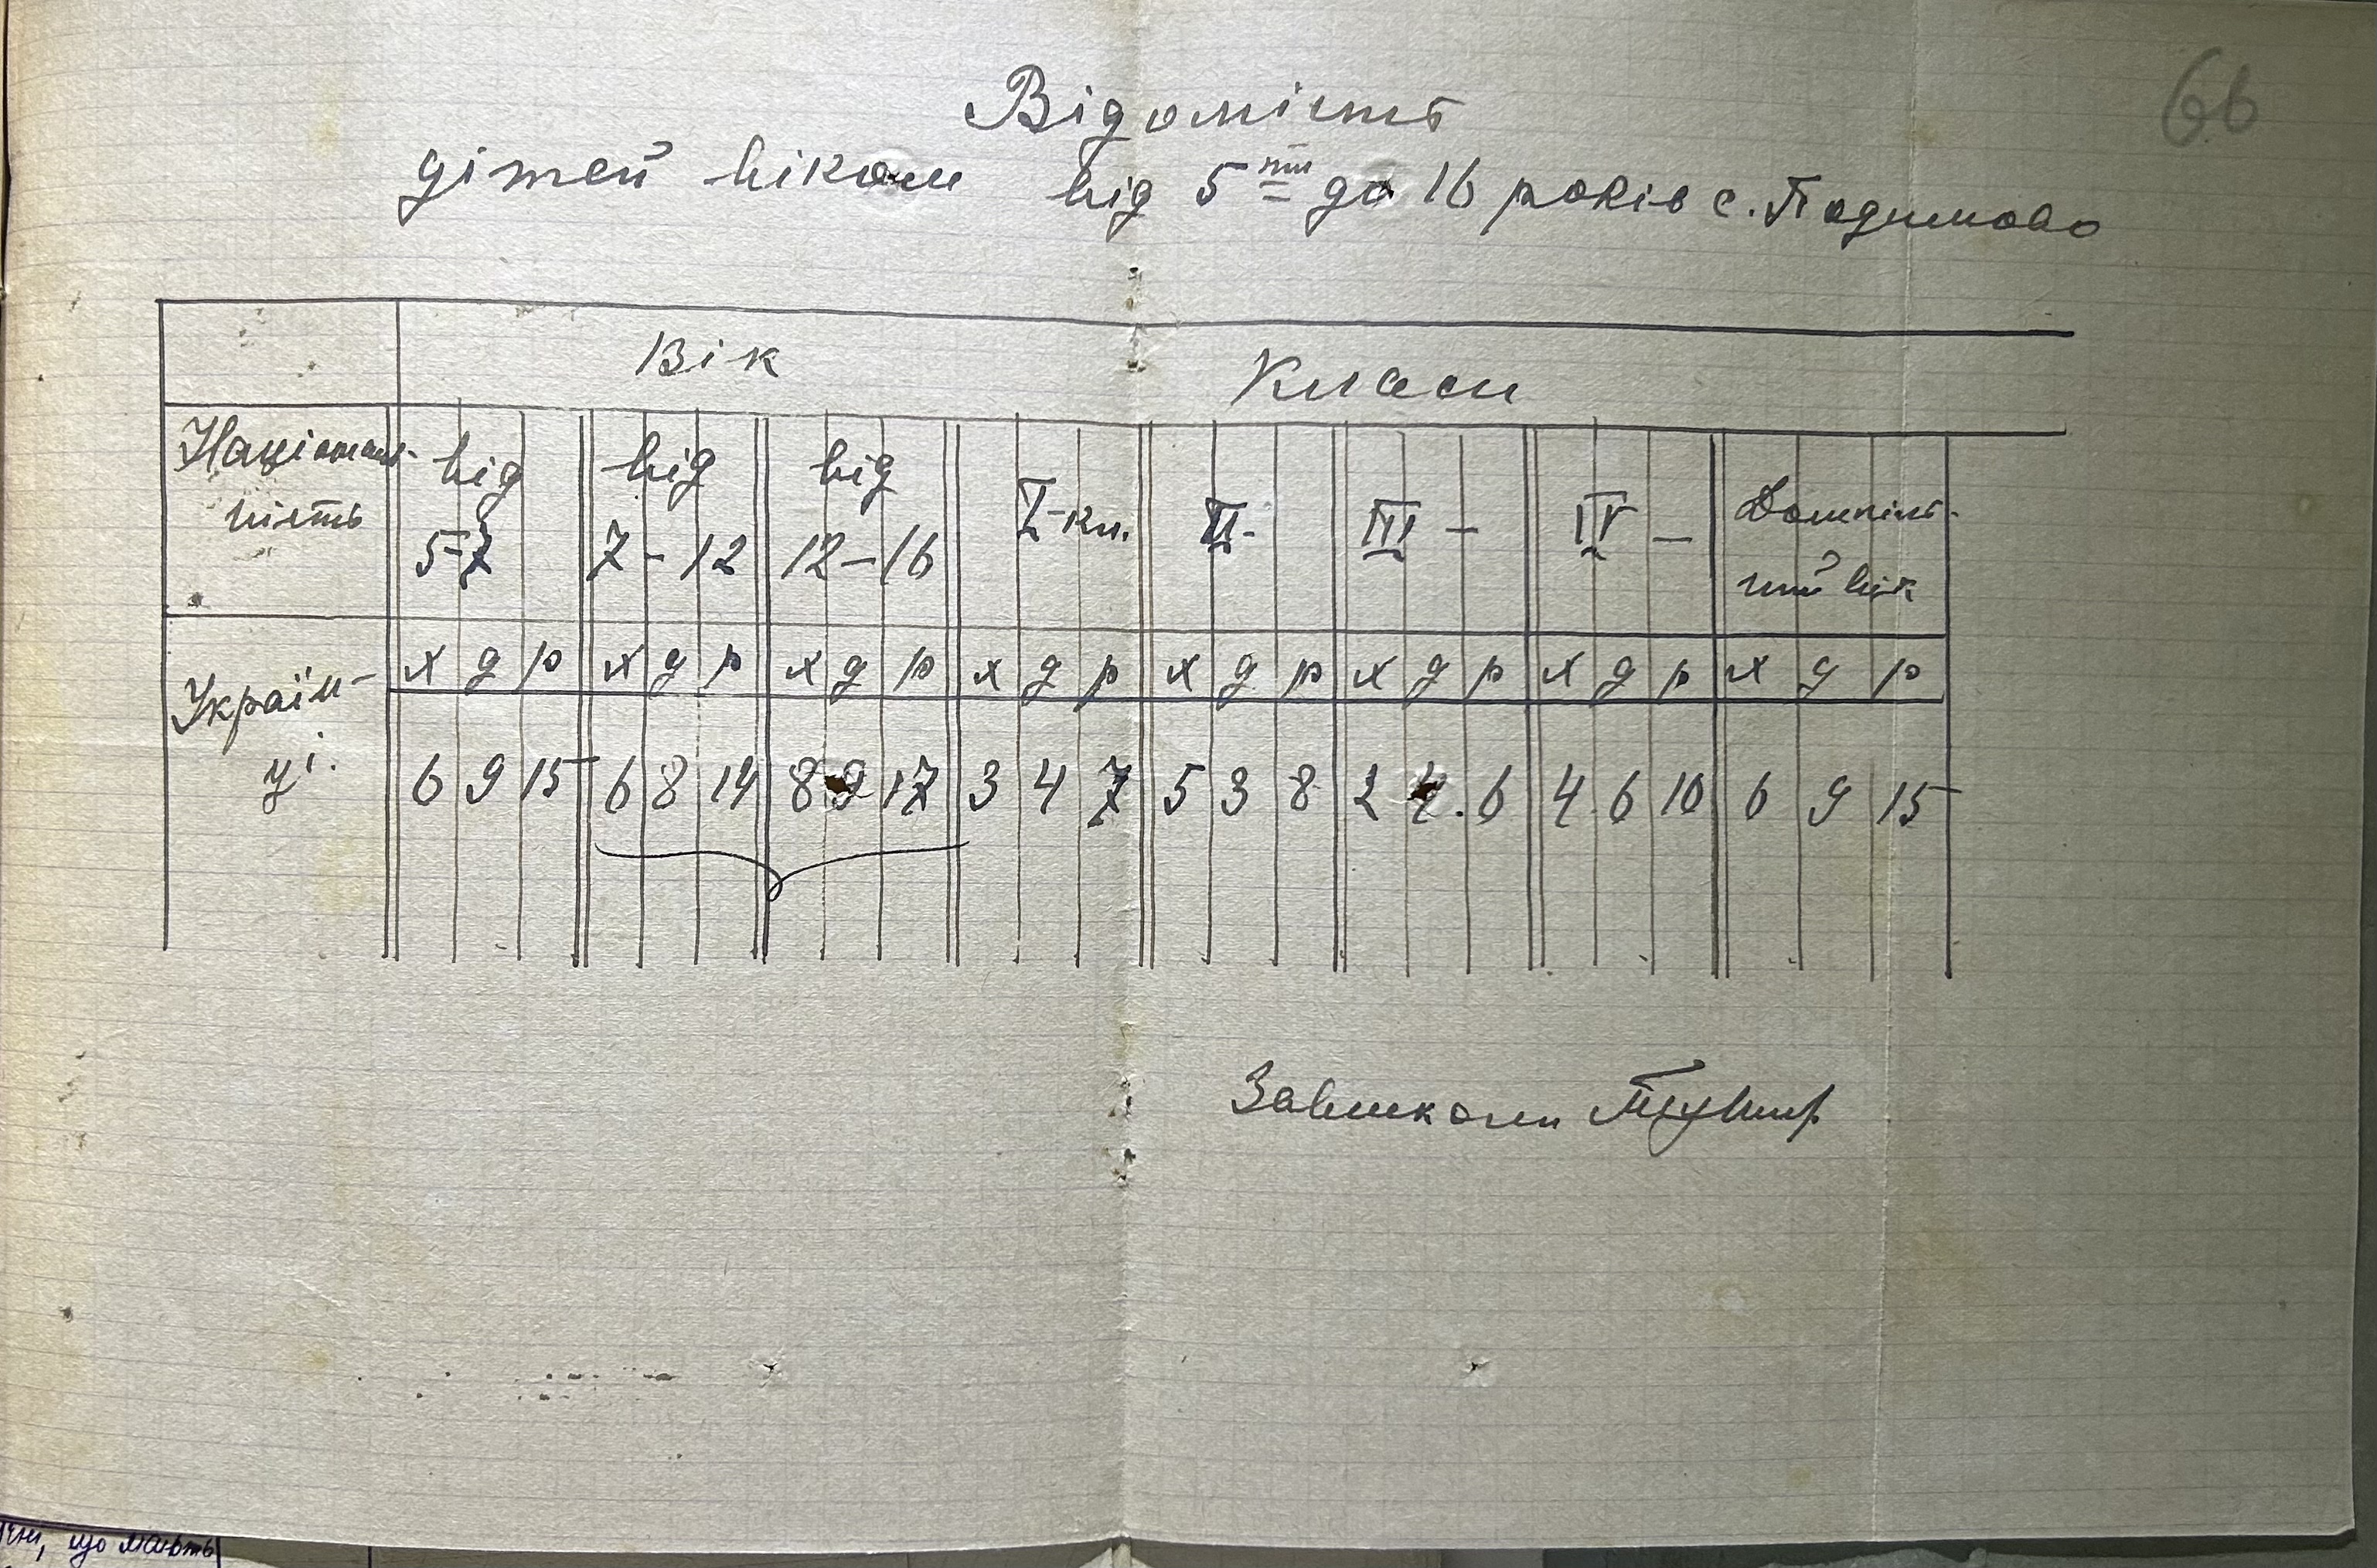 66
Відомість
дітей віком від 5ти до 16 років с. Подимово
Вік Класи
Національ- від від від I-кл. II- III- IV- Дошкіль-
ність 5-7 7-12 12-16 ний вік
х д р х д р х д р х д р х д р х д р х д р х д р
Україн-
ці. 6 9 15 6 8 14 8 9 17 3 4 7 5 3 8 2 4. 6 4 6 10 6 9 15
Завшколи
що мають